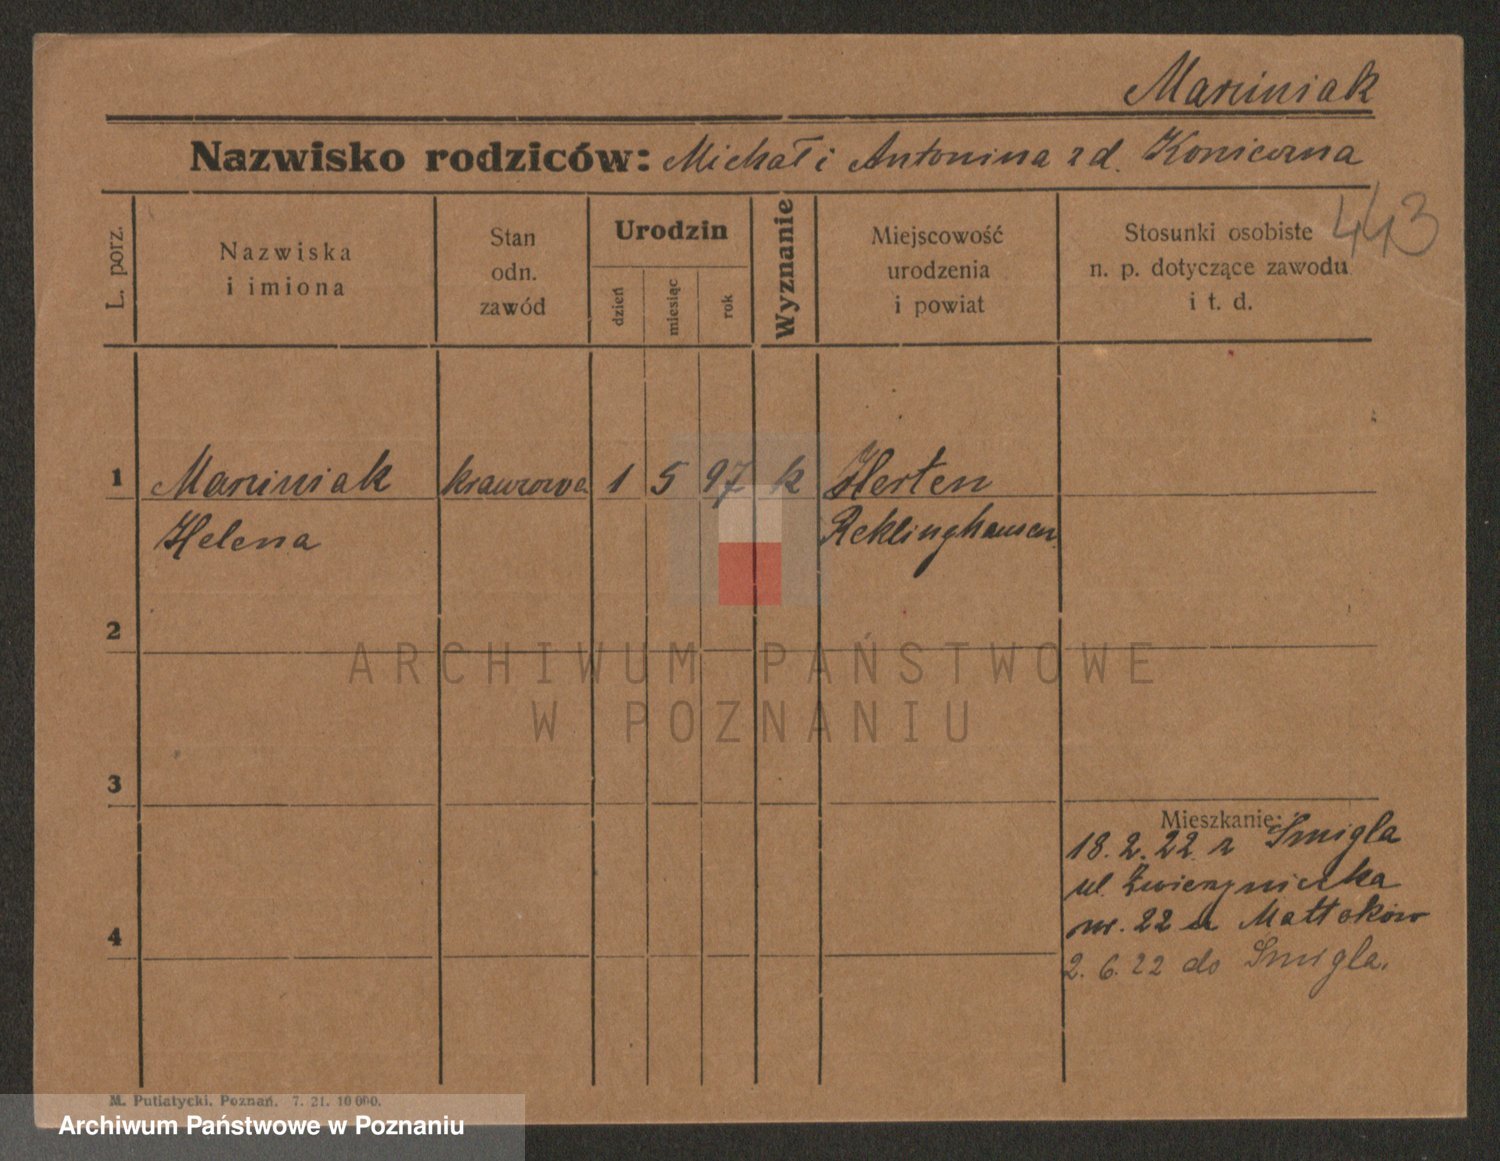 Marciniak
Nazwisko rodziców: Michał i Antonina z d. Konieczna
443
L. porz.
Nazwiska
i imiona
Stan
odn.
zawód
Urodzin
dzień
miesiąc
rok
Wyznanie
Miejscowość
urodzenia
i powiat
Stosunki osobiste
n. p. dotyczące zawodu
i t. d.
1 Marciniak krawcowa 1 5 97 k Herten
Helena Reklinghausen
2
ARCHIWUM PAŃSTWOWE
W POZNANIU
3
Mieszkanie:
18.2.22 z Śmigla
ul. Zwierzyniecka
nr. 22 u Mattoków
4
2.6.22 do Śmigla.
M. Putiatycki, Poznań. 7. 21. 10 000.
Archiwum Państwowe w Poznaniu